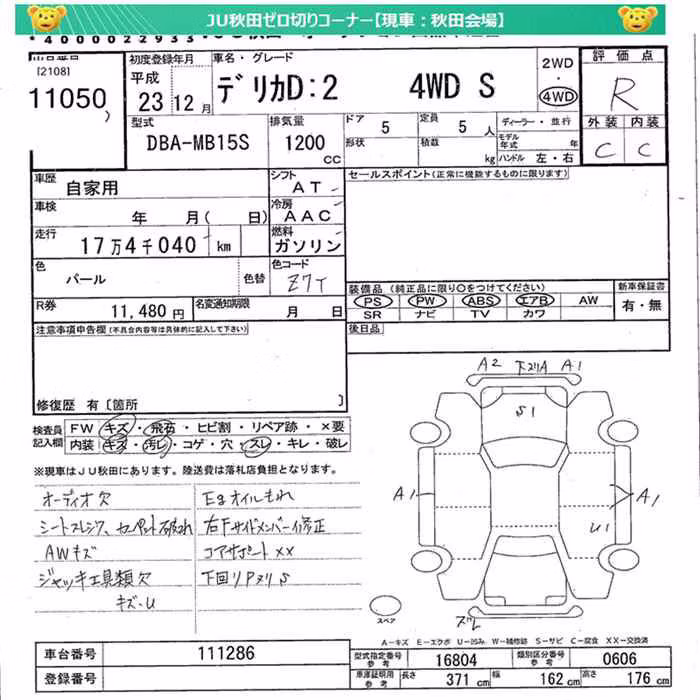 JU秋田ゼロ切りコーナー【現車:秋田会場】
[2108]
11050
初度登録年月
平成
23 12月
車名・グレード
デリカD:2 4WD S
2WD
・
4WD
評価点
R
外装 内装
C C
型式
DBA-MB15S
排気量
1200
CC
ドア 5
定員 5 人
形状
積載 kg
ディーラー・並行
モデル年式 年
ハンドル 左・右
車歴 自家用
シフト AT
セールスポイント(正常に機能するものに限ります)
車検 年 月( 日)
冷房 AAC
走行 17万4千040 km
燃料 ガソリン
色 パール 色替
色コード Z7T
装備品 (純正品に限り〇をつけてください)
新車保証書
PS PW ABS エアB AW
有・無
SR ナビ TV カワ
R券 11,480円
名変通知期限 月 日
後日品
注意事項申告欄(不具合内容等は具体的に記入して下さい)
修復歴 有[箇所 ]
検査員記入欄
FW キズ・飛石・ヒビ割・リペア跡・×要
内装 キズ・汚レ・コゲ・穴・スレ・キレ・破レ
※現車はJU秋田にあります。陸送費は落札店負担となります。
オーディオ欠
Egオイルもれ
右Fサイドメンバー修正
AWキズ
コアサポートXX
ジャッキ工具類欠
キズ・U
A2 下ズリA A1
S1
A1
A1
U1
ズレ
スペア
A-キズ E-エクボ U-凹み W-補修跡 S-サビ C-腐食 XX-交換済
車台番号 111286
型式指定番号 参考 16804
類別区分番号 参考 0606
登録番号
車庫証明用 参考 長さ 371 cm 幅 162 cm 高さ 176 cm